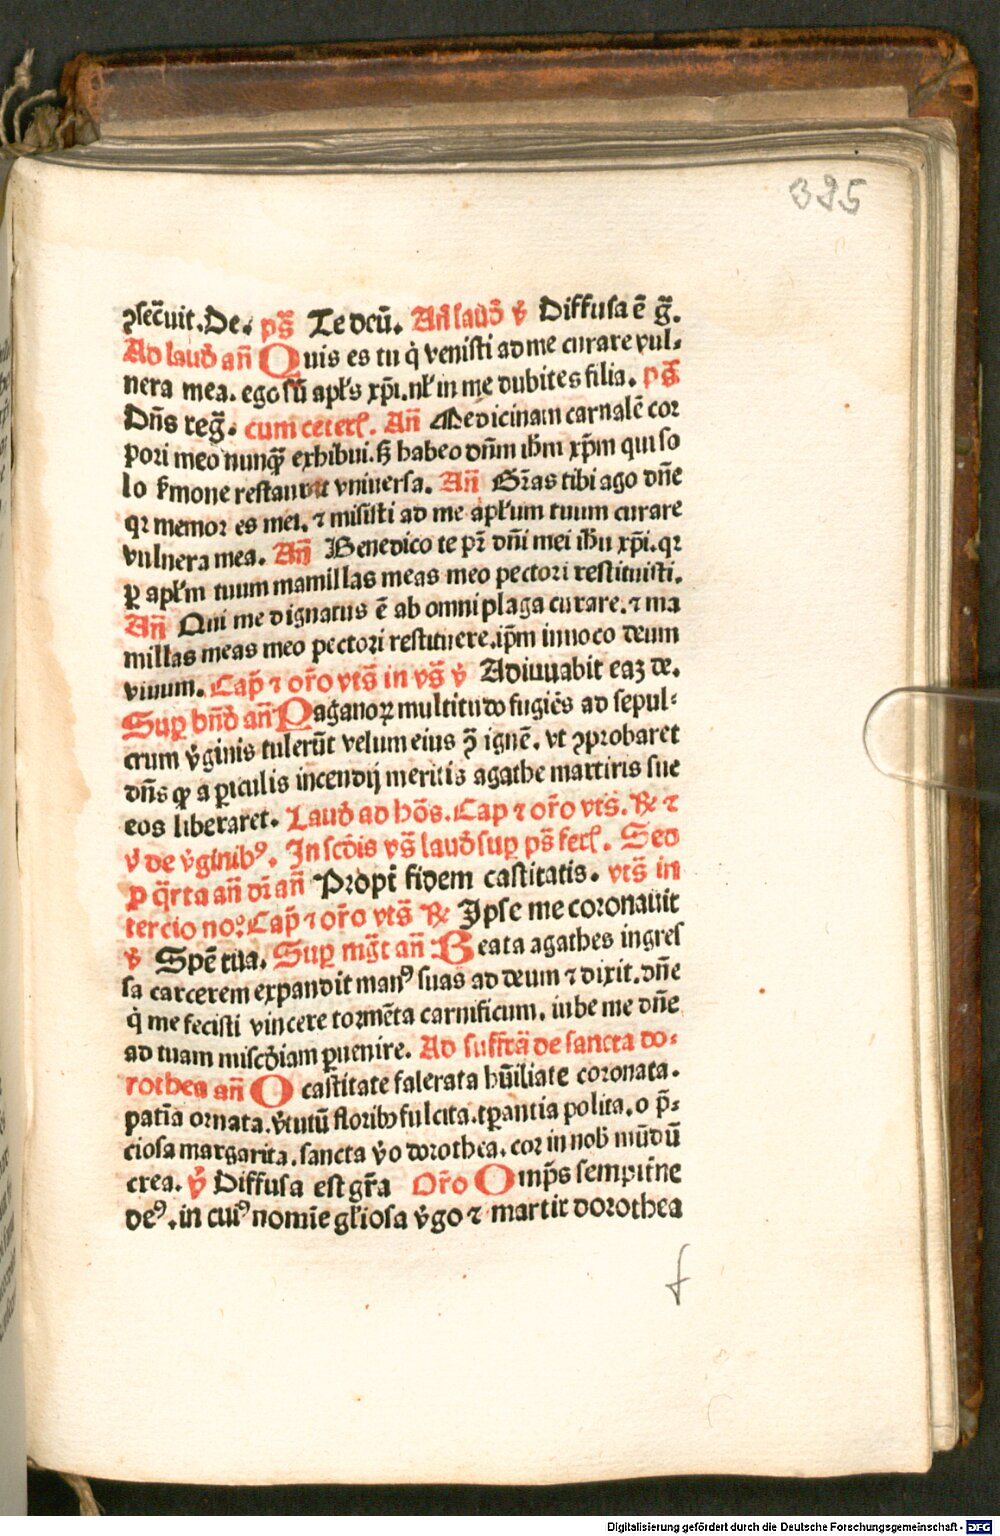 395
ꝯsec̄uit. De. ps̄ Te deū. An̄ laud̄ v̄ Diffusa ē ḡ.
Ad laud̄ an̄ Quis es tu q̇ venisti ad me curare vul⸗
nera mea. ego sū apl's xp̄i. nl' in me dubites filia. ps̄
Dn̄s reḡ. cum ceteris. An̄ Medicinam carnalē cor
pori meo nunqꝫ exhibui. sꝫ habeo dn̄m ih̄m xp̄m qui so
lo s̄mone restaurat vniuersa. An̄ Gr̄as tibi ago dn̄e
qꝛ memor es mei. ⁊ misisti ad me apl'um tuum curare
vulnera mea. An̄ Benedico te pr̄ dn̄i mei ih̄u xp̄i. qꝛ
ꝑ apl'm tuum mamillas meas meo pectori restituisti.
An̄ Qui me dignatus ē ab omni plaga curare. ⁊ ma
millas meas meo pectori restituere. ip̄m inuoco deum
viuum. Cap̄ ⁊ or̄o vts̄ in vs̄ v̄ Adiuuabit eaꝫ de.
Suꝑ bn̄d̄ an̄ Paganoꝝ multitudo fugiēs ad sepul⸗
crum v̄ginis tulerūt velum eius ꝯ̄ ignē. vt ꝯprobaret
dn̄s ꝙ a ꝑiculis incendij meritis agathe martiris sue
eos liberaret. Laud̄ ad hōs. Cap ⁊ or̄o vts̄. ℟ ⁊
v̄ de v̄ginibꝰ. In scd̄is vs̄ laud̄ suꝑ ps̄ ferl'. Sed
ꝑ q̄rta an̄ dr̄ an̄ Propt̄ fidem castitatis. vts̄ in
tercio noc̄. Cap̄ ⁊ or̄o vts̄ ℟ Ipse me coronauit
v̄ Spē tua. Suꝑ mḡt an̄ Beata agathes ingres
sa carcerem expandit manꝰ suas ad deum ⁊ dixit. dn̄e
q̇ me fecisti vincere tormēta carnificum. iube me dn̄e
ad tuam misc̄diam ꝑuenire. Ad suffrā de sancta do⸗
rothea an̄ O castitate falerata hūiliate coronata.
patīa ornata. v̄tutū floribꝫ fulcita. tꝑantia polita. o p̄⸗
ciosa margarita. sancta v̄o dorothea. cor in nob̄ mūdū
crea. v̄ Diffusa est gr̄a Or̄o Omp̄s sempit̄ne
deꝰ. in cuiꝰ nomīe gl'iosa v̄go ⁊ martir dorothea
f
Digitalisierung gefördert durch die Deutsche Forschungsgemeinschaft - DFG